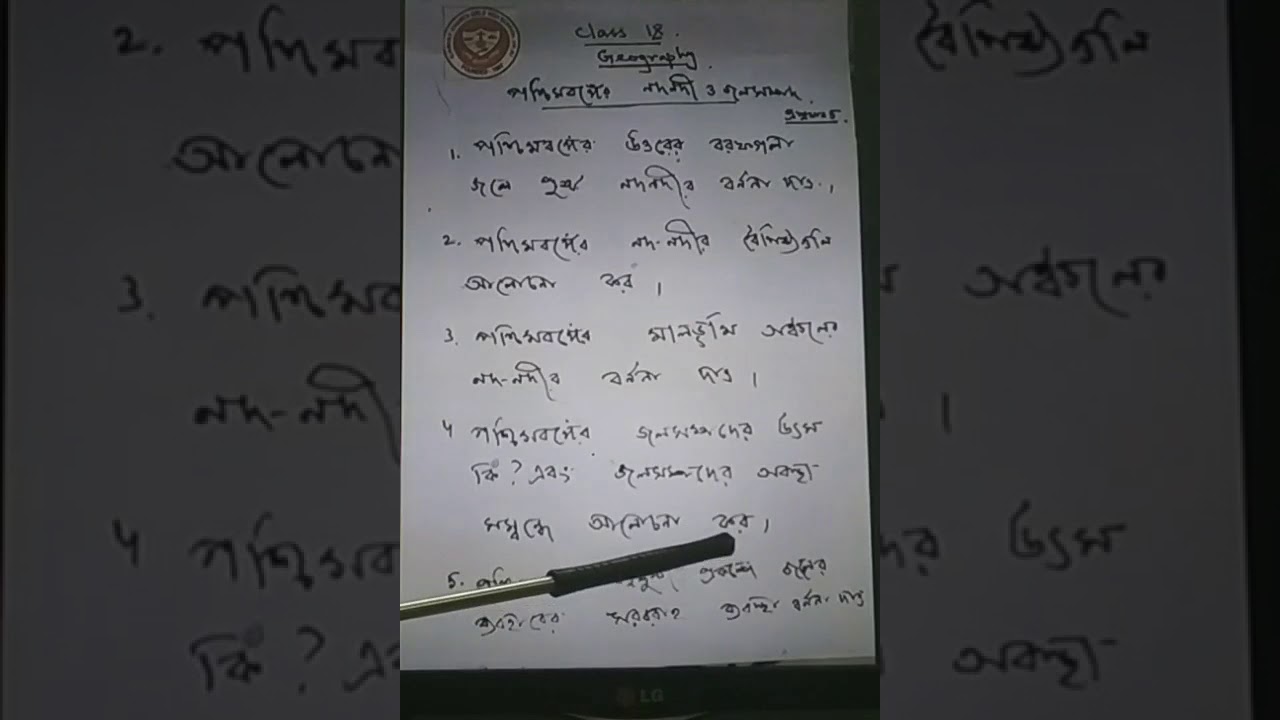 Class 18.
Geography.
পশ্চিমবঙ্গের নদনদী ও জলসম্পদ
1. পশ্চিমবঙ্গের উত্তরের বরফগলা
জলে পুষ্ট নদনদীর বর্ননা দাও।
2. পশ্চিমবঙ্গের নদ-নদীর বৈশিষ্ট্যগুলি
আলোচনা কর।
3. পশ্চিমবঙ্গের মালভূমি অঞ্চলের
নদ-নদীর বর্ননা দাও।
4 পশ্চিমবঙ্গের জলসম্পদের উৎস
কি? এবং জলসম্পদের অবস্থা
সম্বন্ধে আলোচনা কর।
5. জলের
ব্যবহারের সরবরাহ ব্যবস্থা বর্ননা দাও
LG